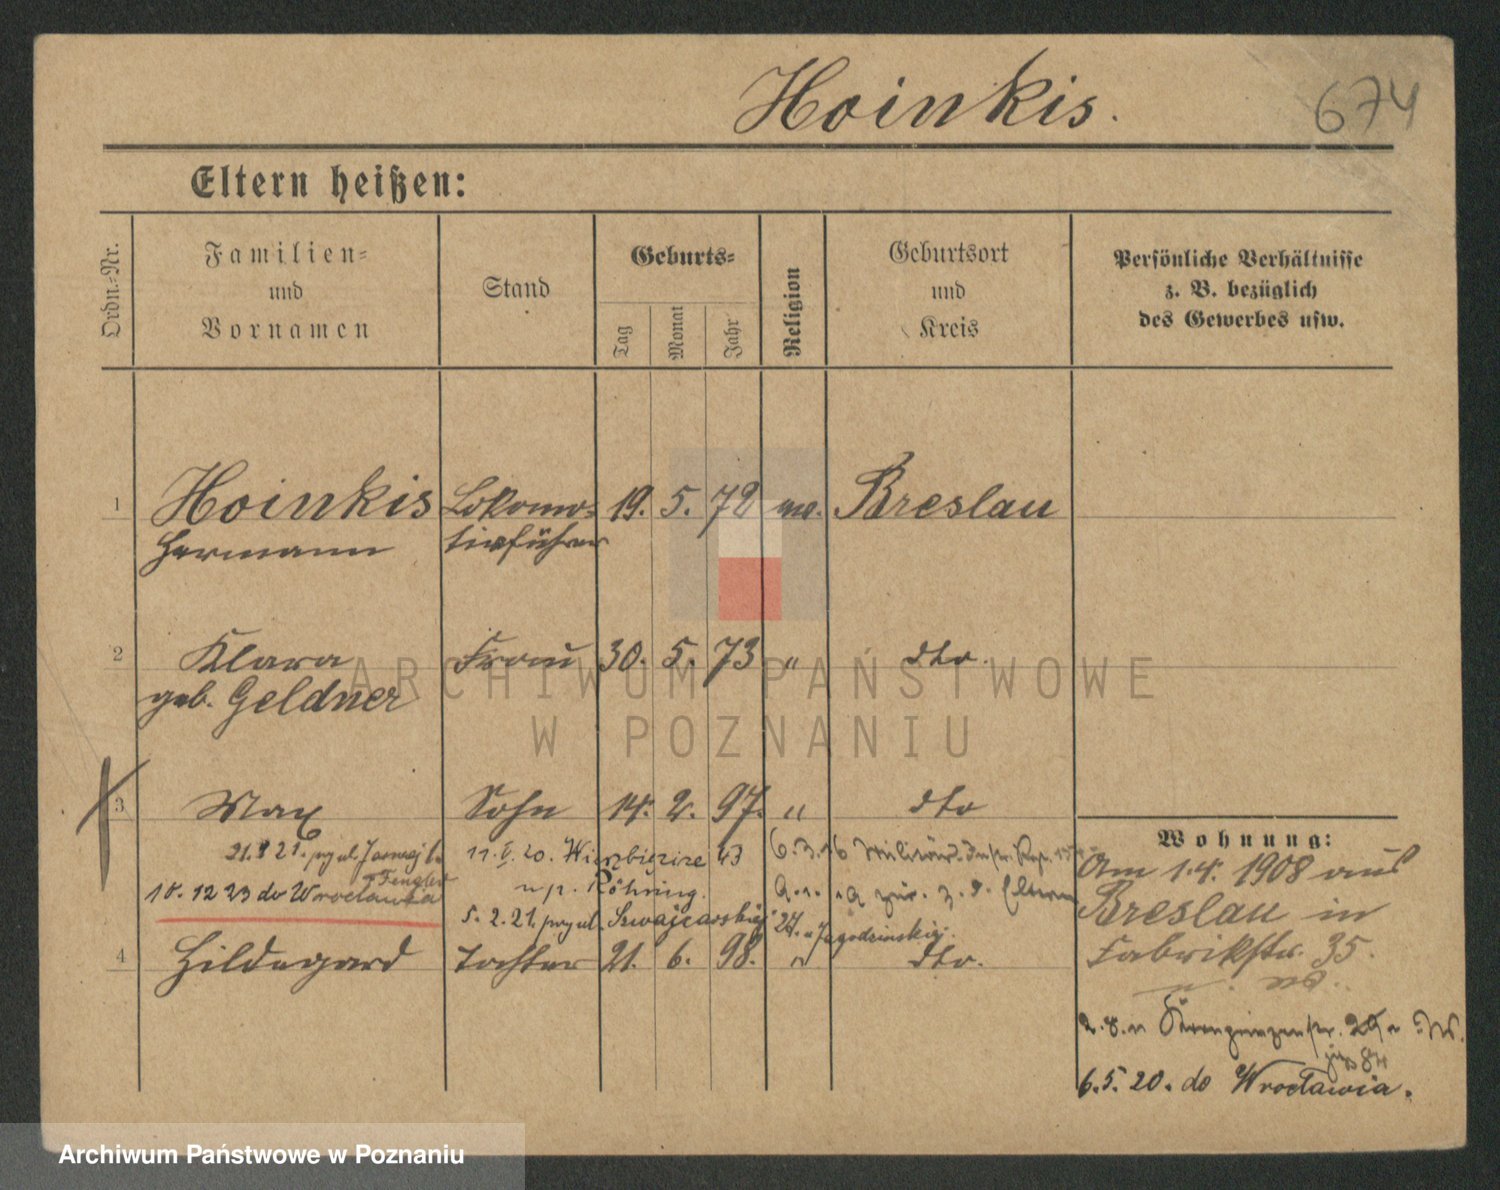 Hoinkis.
674
Eltern heißen:
Ordn.-Nr.
Familien-
und
Vornamen
Stand
Geburts-
Tag
Monat
Jahr
Religion
Geburtsort
und
Kreis
Persönliche Verhältnisse
z. B. bezüglich
des Gewerbes usw.
1 Hoinkis Lokomo- 19. 5. 72 Breslau
Hermann tivführer
2 Klara Frau 30. 5. 73 " dto.
geb. Geldner
3 Max Sohn 14. 2. 97. " dto
21. 21. przy ul. 11. V. 20. 43 6. 3. 16
Fengler
18. 12 23 do Wrocławia Röhring. z. d. Eltern
5. 2. 21. przy ul. Szwajcarskiej 27. Jagodzinskiej.
4 Hildegard Tochter 21. 6. 98. " dto.
Wohnung:
Am 1.4. 1908 aus
Breslau in
Fabrikstr. 35.
2. 8. Kronprinzenstr.
6. 5. 20. do Wrocławia.
ARCHIWUM PAŃSTWOWE
W POZNANIU
Archiwum Państwowe w Poznaniu